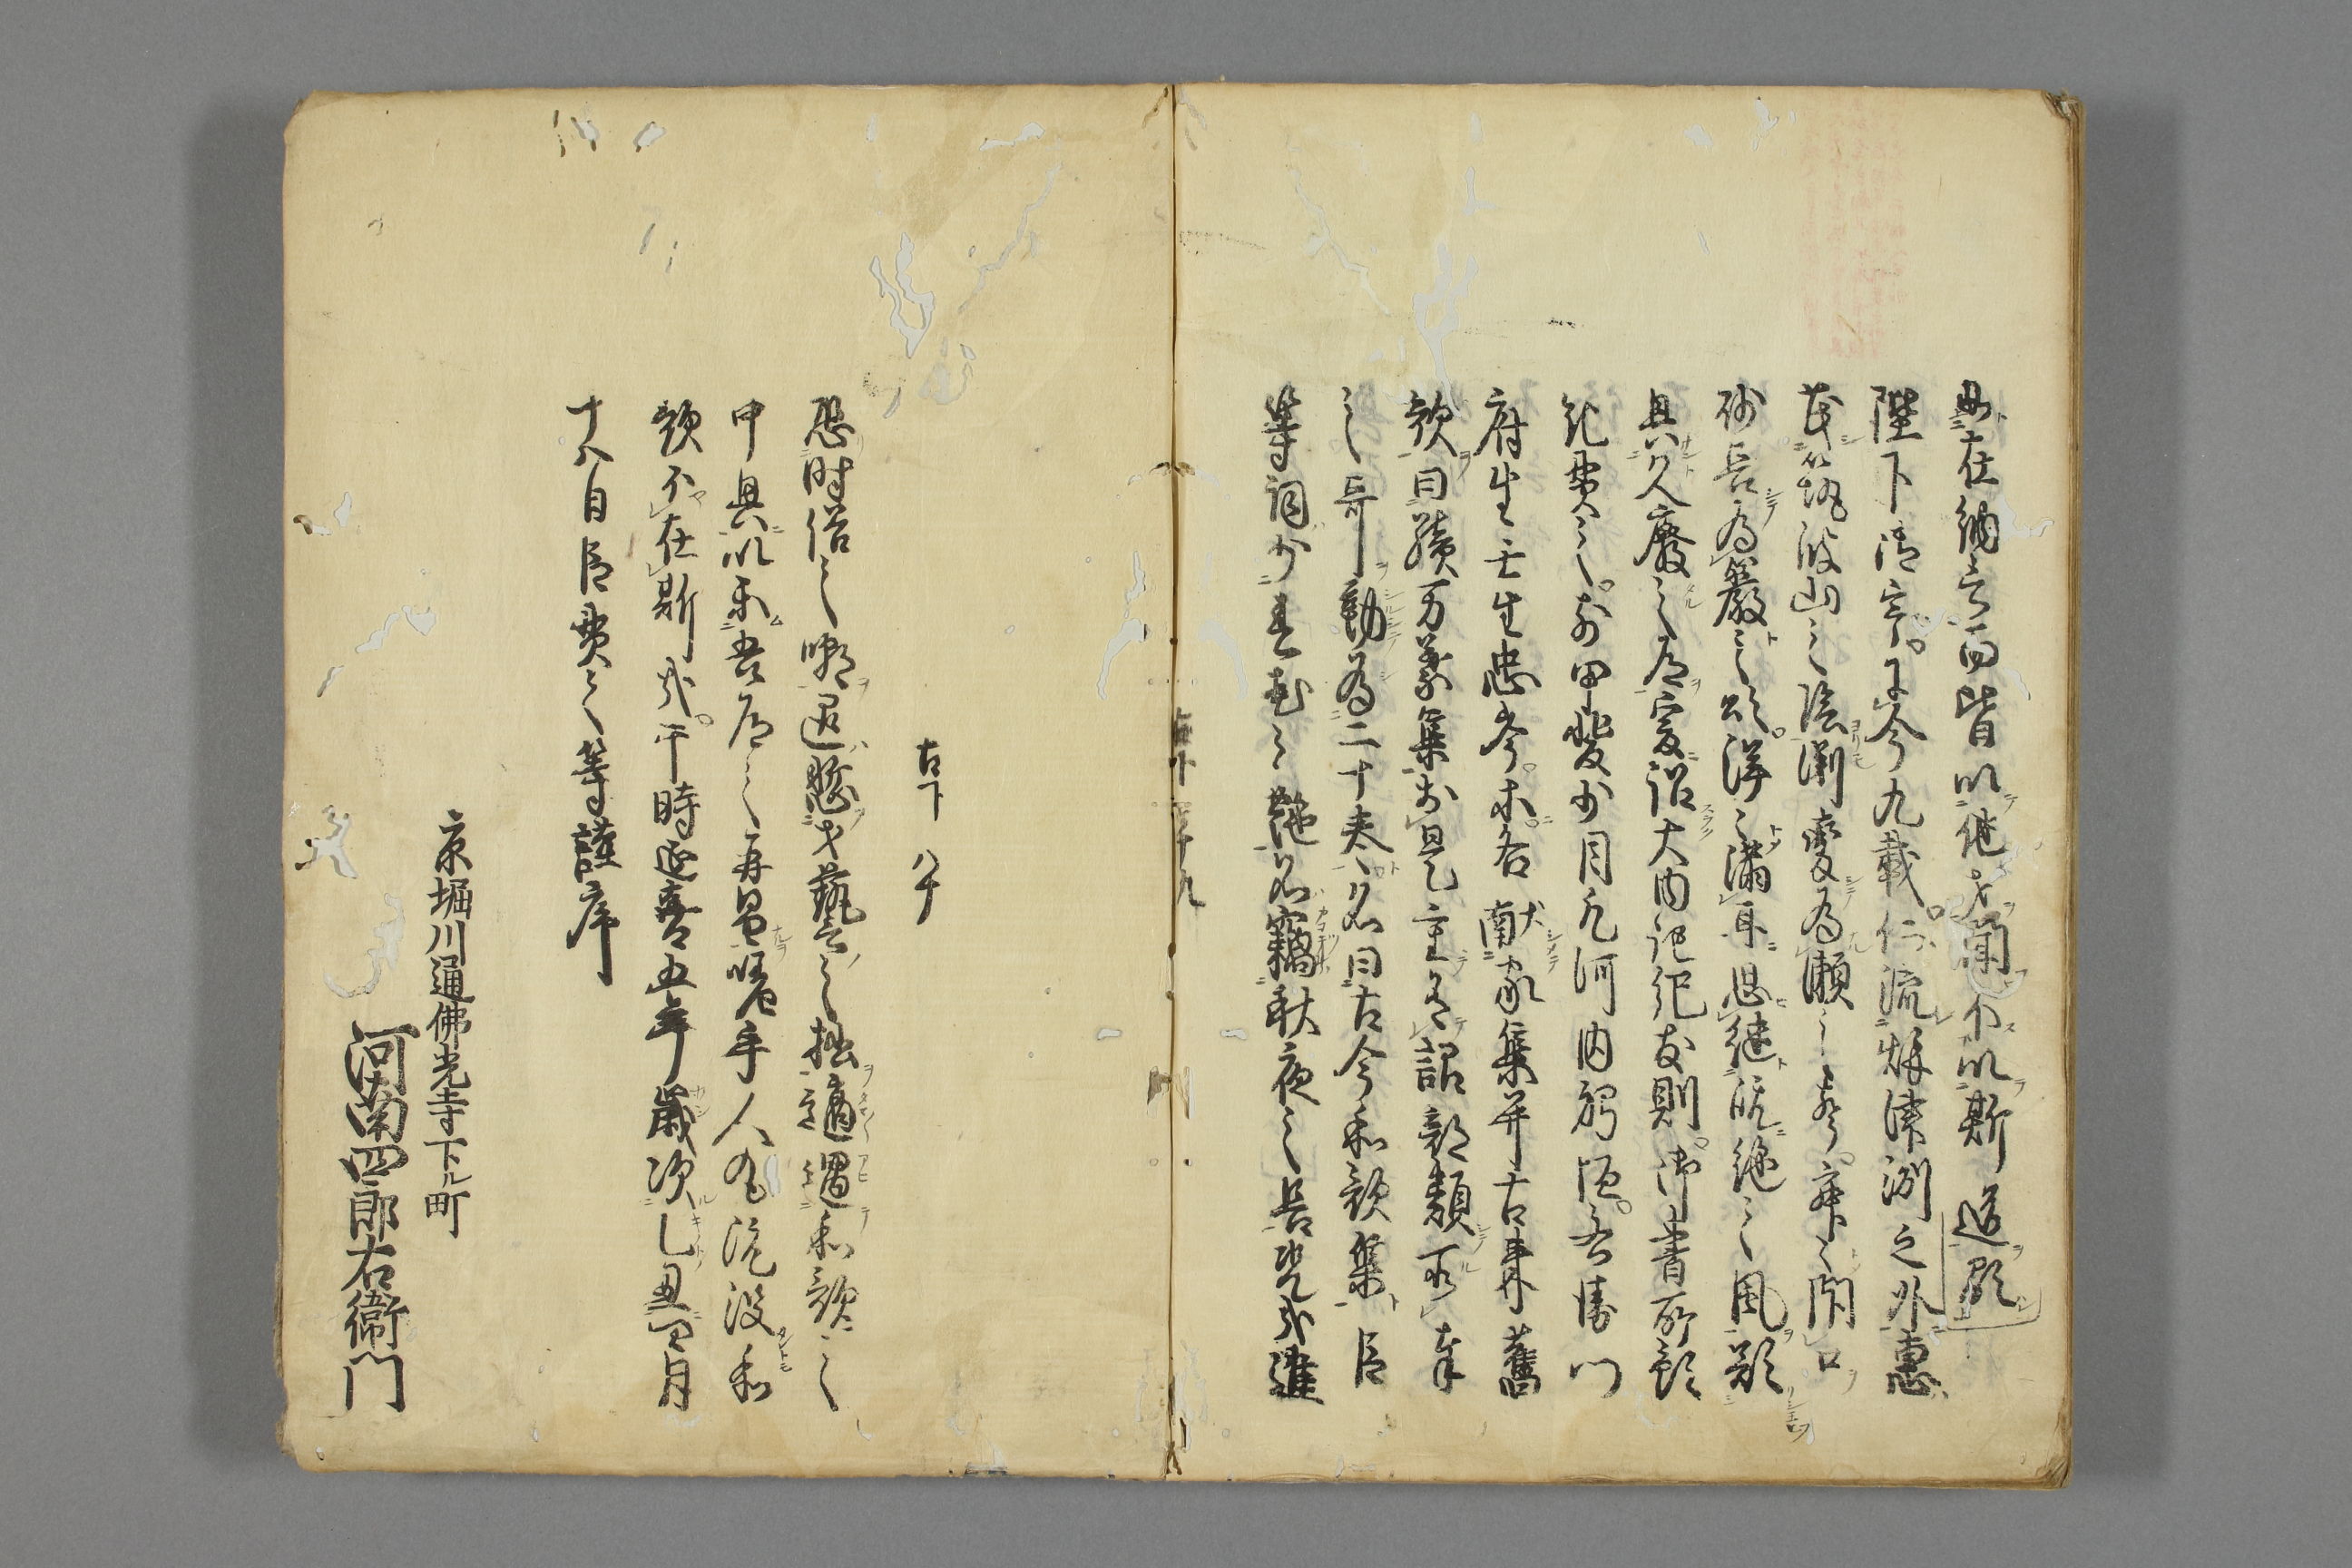 如在納言而皆以他才聞不以斯道顕
陛下御宇于今九載仁流秋津洲之外惠
茂筑波山之陰渕變為瀬之声寂々閇口
砂長為巖之頌洋々満耳思継既絶之風欲
興久廢之道爰詔大内記紀友則御書所預
紀貫之前甲斐少目凡河内躬恒右衛門
府生壬生忠岑等各献家集并古来舊
歌曰續万葉集於是重有詔部類所奉
之哥勒為二十巻名曰古今和歌集臣
等詞少春花之艶名竊秋夜之長况哉進
古下 八十
恐時俗之嘲退慙才藝之拙適遇和歌之
中興以樂吾道之再昌嗟乎人丸既没和
歌不在斯哉于時延喜五年歳次乙丑四月
十八日臣貫之等謹序
京堀川通佛光寺下ル町
河南四郎右衛門